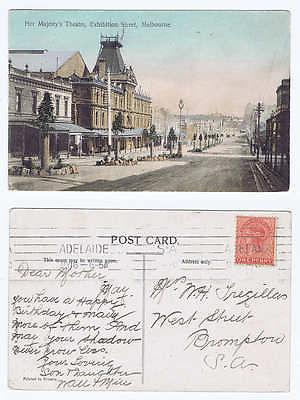 Her Majesty's Theatre, Exhibition Street, Melbourne.
POST CARD.
This space may be written upon.
Address only.
ADELAIDE
S.A.
ADELAIDE
ONE PENNY
Dear Mother
May
you have a Happy
Birthday & many
more of them. And
may your shadow
never grow less.
Your Loving
Son & Daughter
Walt & Min
Printed in Prussia.
Mrs W.H. Tregillas
West Street
Brompton
S.A.